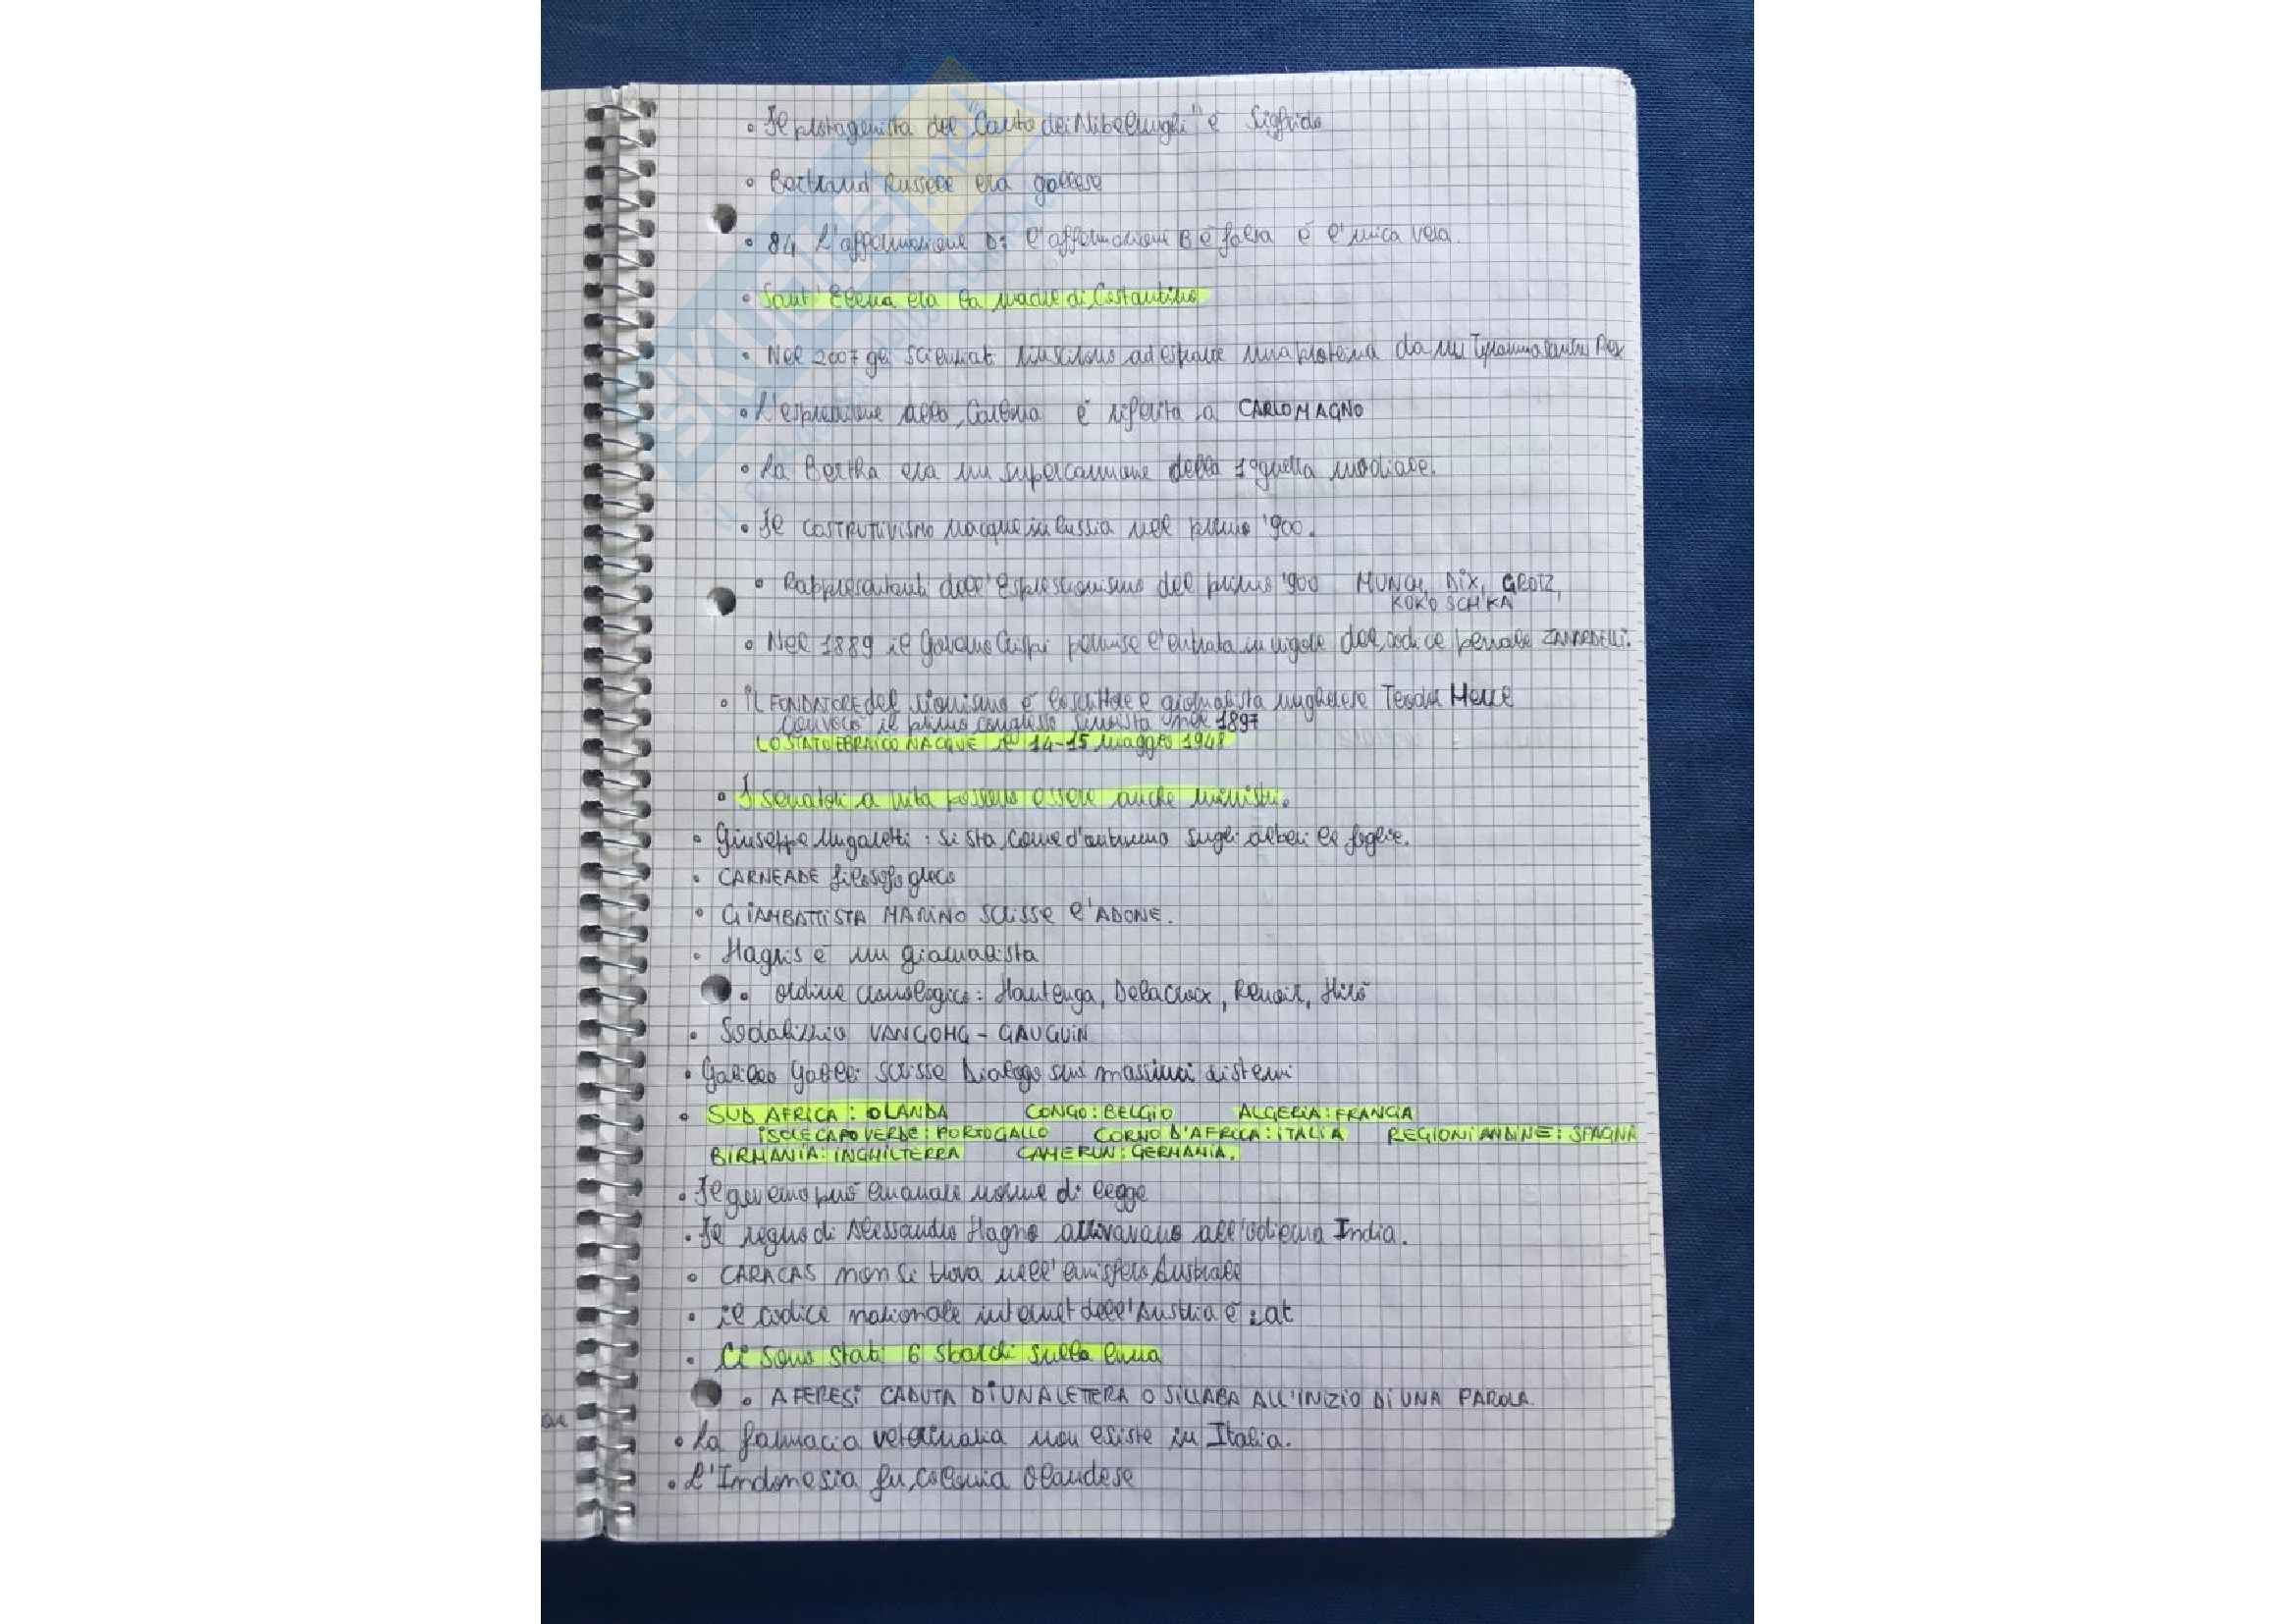 • Il protagonista del "Canto dei Nibelunghi" è Sigfrido
• Bertrand Russell era gallese
• 84 L'affermazione D: l'affermazione B è falsa è l'unica vera.
• Sant'Elena era la madre di Costantino
• Nel 2007 gli scienziati riuscirono ad estrarre una proteina da un Tyrannosaurus Rex
• L'espressione alla Carlona è riferita a CARLO MAGNO
• La Bertha era un supercannone della 1ª guerra mondiale.
• Il COSTRUTIVISMO nacque in Russia nel primo '900.
• Rappresentanti dell'Espressionismo del primo '900 MUNCH, DIX, GROTZ,
KOKOSCHKA
• Nel 1889 il Governo Crispi permise l'entrata in vigore del codice penale ZANARDELLI.
• IL FONDATORE del sionismo è lo scrittore e giornalista ungherese Teodor
convocò il primo congresso sionista nel 1897
LO STATO EBRAICO NACQUE il 14-15 maggio 1948
• I senatori a vita possono essere anche ministri.
• Giuseppe Ungaretti: si sta come d'autunno sugli alberi le foglie.
• CARNEADE filosofo greco
• GIAMBATTISTA MARINO scrisse l'ADONE.
• è un giornalista
• ordine cronologico: Delacroix, Renoir, Mirò
• Sodalizio VANGOHG - GAUGUIN
• Galileo Galilei scrisse Dialogo sui massimi sistemi
• SUD AFRICA: OLANDA CONGO: BELGIO ALGERIA: FRANCIA
ISOLE CAPO VERDE: PORTOGALLO CORNO D'AFRICA: ITALIA REGIONI ANDINE: SPAGNA
BIRMANIA: INGHILTERRA CAMERUN: GERMANIA.
• Il governo può emanare norme di legge
• Il regno di Alessandro Magno arrivavano all'odierna India.
• CARACAS non si trova nell'emisfero Australe
• il codice nazionale internet dell'Austria è .at
• Ci sono stati 6 sbarchi sulla luna
• AFERESI CADUTA DI UNA LETTERA O SILLABA ALL'INIZIO DI UNA PAROLA.
• La farmacia veterinaria non esiste in Italia.
• L'Indonesia fu colonia Olandese